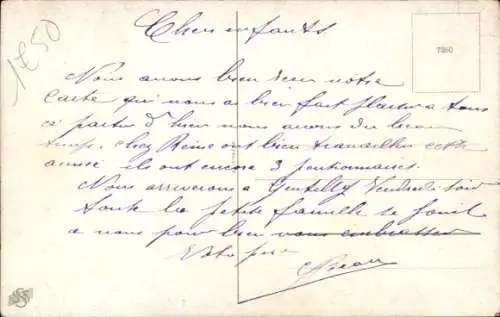 1€50
Chers enfants
7260
Nous avons bien reçu votre
carte qui nous a bien fait plaisir a tous
a partir d'hier nous avons du beau
temps. chez Reine ont bien travailler cette
aussi ils ont encore 3 pentionnaires.
Nous arriverons a Gentilly Vendredi soir
toute la petite famille se joint
a nous pour bien vous embrasser
Votre père